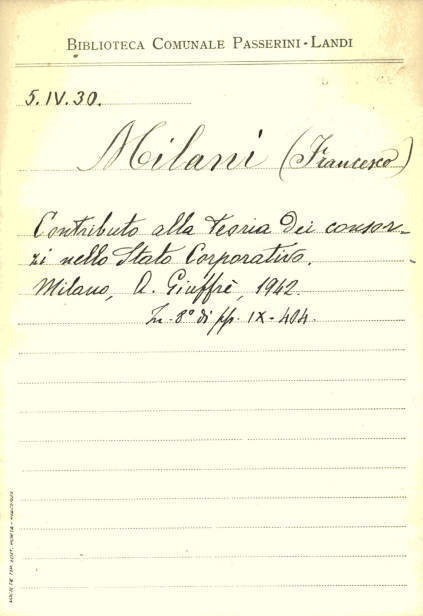 BIBLIOTECA COMUNALE PASSERINI-LANDI
5.IV.30.
Milani (Francesco)
Contributo alla Teoria Dei consor-
zi nello Stato Corporativo.
Milano, A. Giuffrè, 1942.
In-8° di pp. IX-404.